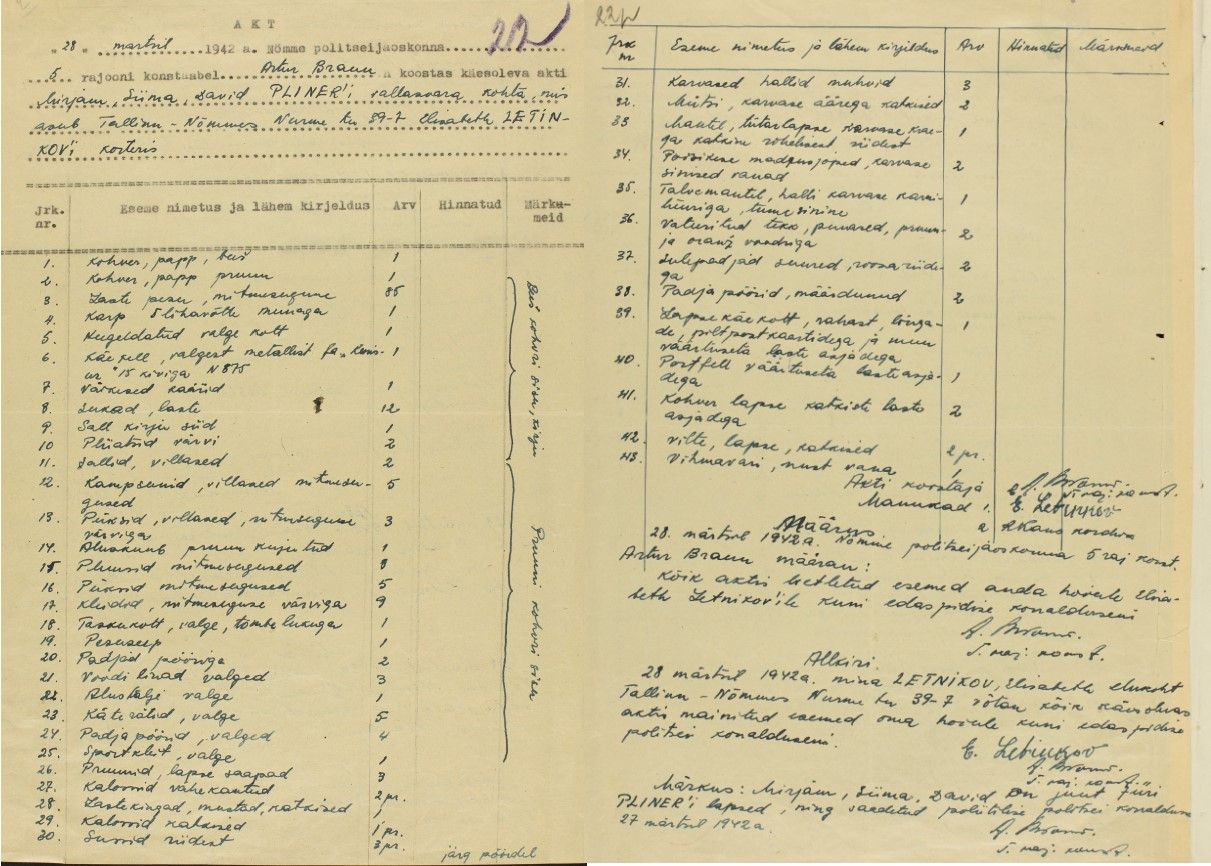 22
AKT
"28" märtsil 1942 a. Nõmme politseijaoskonna
5 rajooni konstaabel Artur Braun koostas käesoleva akti
Mirjam, Siima, David PLINER'i vallasvara kohta, mis
asub Tallinn-Nõmmes Nurme tn 39-7 Elisabeth LETIN-
KOV'i korteris
Jrk. nr. Eseme nimetus ja lähem kirjeldus Arv Hinnatud Märka-
meid
1. Kohver, papp, beiš 1
2. Kohver, papp pruun 1
3. Laste pesu, mitmesugune 85
4. Karp lihavõtte munaga 1
5. Heegeldatud valge kott 1
6. Käekell, valgest metallist fa
15 kiviga N 875 1
7. käärid 1
8. Sukad, laste 12
9. Sall kirju siid 1
10 Pliiatsid värvi 2
11. Sallid, villased 2
12. Kampsunid, villased mitmesu-
gused 5
13. Püksid, villased, mitmesuguse
värviga 3
14. Aluskuub pruun kujutud 1
15 Pluusid mitmesugused 8
16. Püksid mitmesugused 5
17. Kleidid, mitmesuguse värviga 9
18. Taskukott, valge, tõmbelukuga 1
19. Pesuseep 1
20. Padjad pööriga 2
21. Voodi linad valged 3
22. valge 1
23 Käterätid, valge 5
24. Padja pöörid, valged 4
25. Sportkleit, valge 1
26. Pruunid, lapse saapad 3
27. Kalossid vähekantud 2 pr.
28. Lastekingad, mustad, katkised 1
29. Kalossid katkised 1 pr.
30. Sussid riidest 3 pr.
Beiš kohvri sisu, kirju
Pruuni kohvri sisu
järg pöördel
22p
Jrk nr Eseme nimetus ja lähem kirjeldus Arv Hinnatud Märkmeid
31. Karvased hallid muhvid 3
32. Mütsi, karvase äärega katkised 2
33 Mantel, tütarlapse karvase krae-
ga katkine rohelisest riidest 1
34. Poisikese madrusjoped, karvase
sinised vanad 2
35. Talvemantel, halli karvase karni-
tuuriga, tumesinine 1
36. Vateeritud tekk, punased, pruun-
ja oranž voodriga 2
37. Sulepadjad suured, roosa riide-
ga 2
38. Padja pöörid, määrdunud 2
39. Lapse käekott, rahast, lõnga-
de, piltpostkaartidega ja muu
väärtuseta laste asjadega 1
40. Portfell väärtuseta laste asja-
dega 1
41. Kohver lapse katkiste laste
asjadega 2
42. vilte, lapse, katkised 2 pr.
43. Vihmavari, must vana 1
Akti koostaja A. Braun.
5. raj. konst.
Manukad 1. E. Letinkov
2
Määrus
28. märtsil 1942a. Nõmme politseijaoskonna 5 raj konst.
Artur Braun määran:
kõik aktis loetletud esemed anda hoiule Elisa-
beth Letnikov'ile kuni edaspidise korralduseni
A. Braun.
5. raj. konst.
Allkiri.
28 märtsil 1942a. mina LETNIKOV, Elisabeth elukoht
Tallinn-Nõmmes Nurme tn 39-7 võtan kõik käesolevas
aktis mainitud esemed oma hoiule kuni edaspidise
politsei korralduseni.
E. Letinkov
A. Braun.
5. raj. konst.
Märkus: Mirjam, Siima, David on juut Juri
PLINER'i lapsed, ning saadetud poliitilise politsei korraldusel
27 märtsil 1942a.
A. Braun.
5. raj. konst.